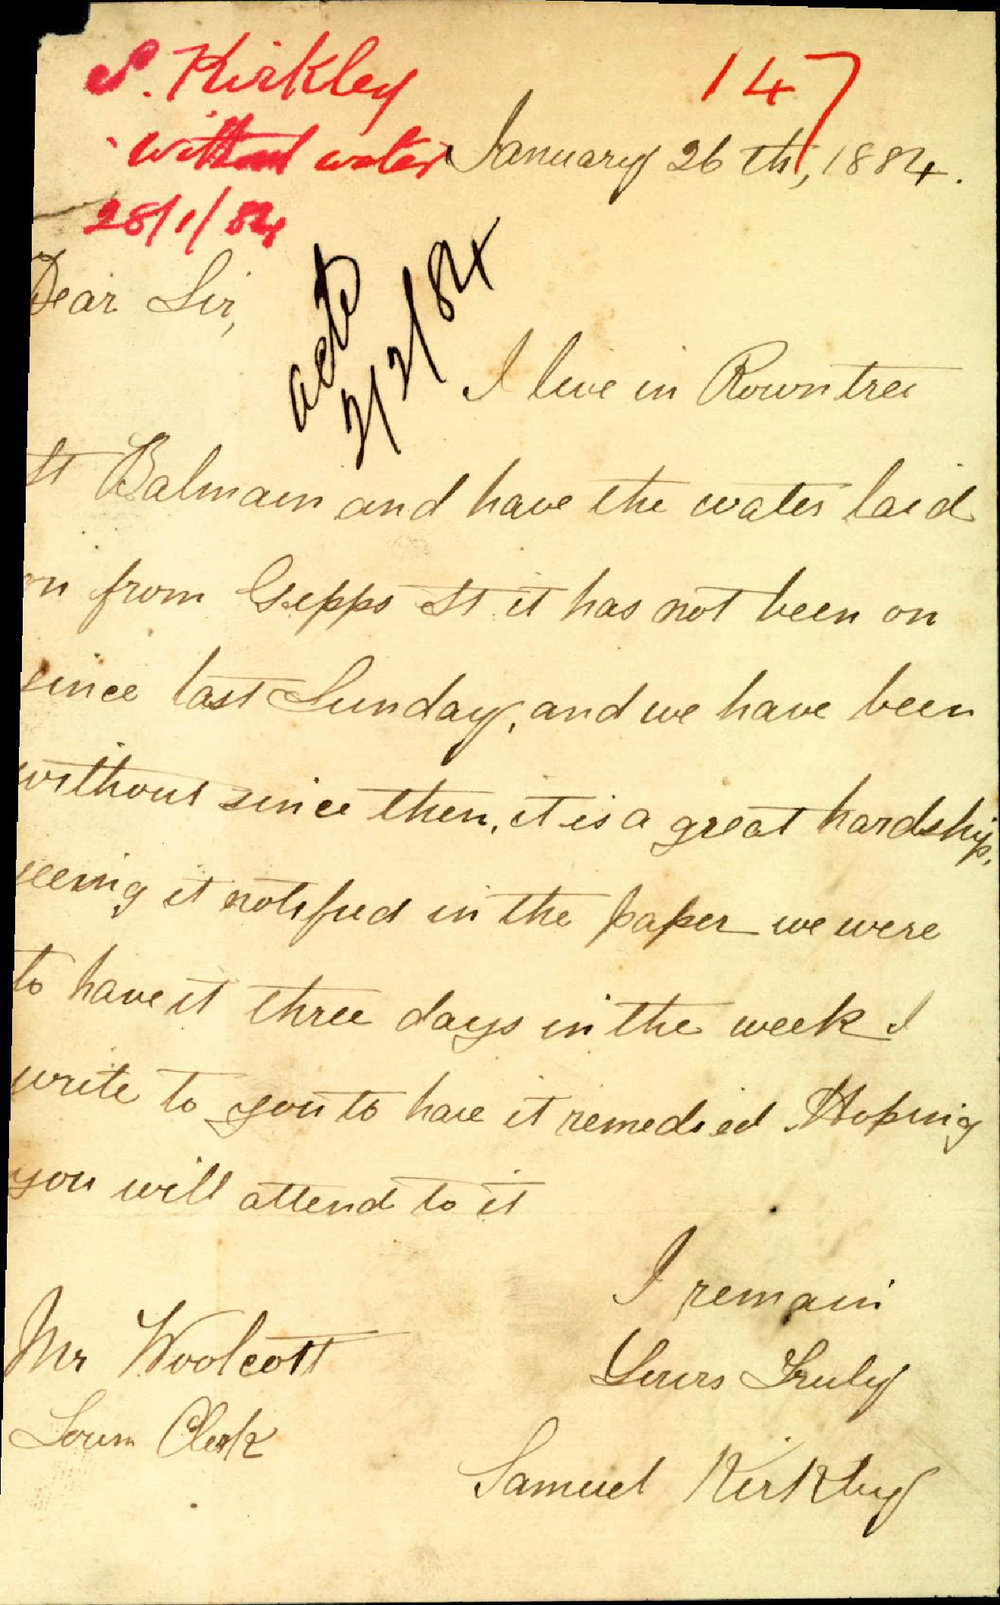 S. Kirkley
147
without water
January 26th, 1884.
28/1/84
Dear Sir,
actd
2/2/84
I live in Rowntree
St Balmain and have the water laid
on from Gepps St it has not been on
since last Sunday, and we have been
without since then, it is a great hardship,
seeing it notified in the paper we were
to have it three days in the week I
write to you to have it remedied. Hoping
you will attend to it
I remain
Yours Truly
Mr Woolcott
Town Clerk
Samuel Kirkby